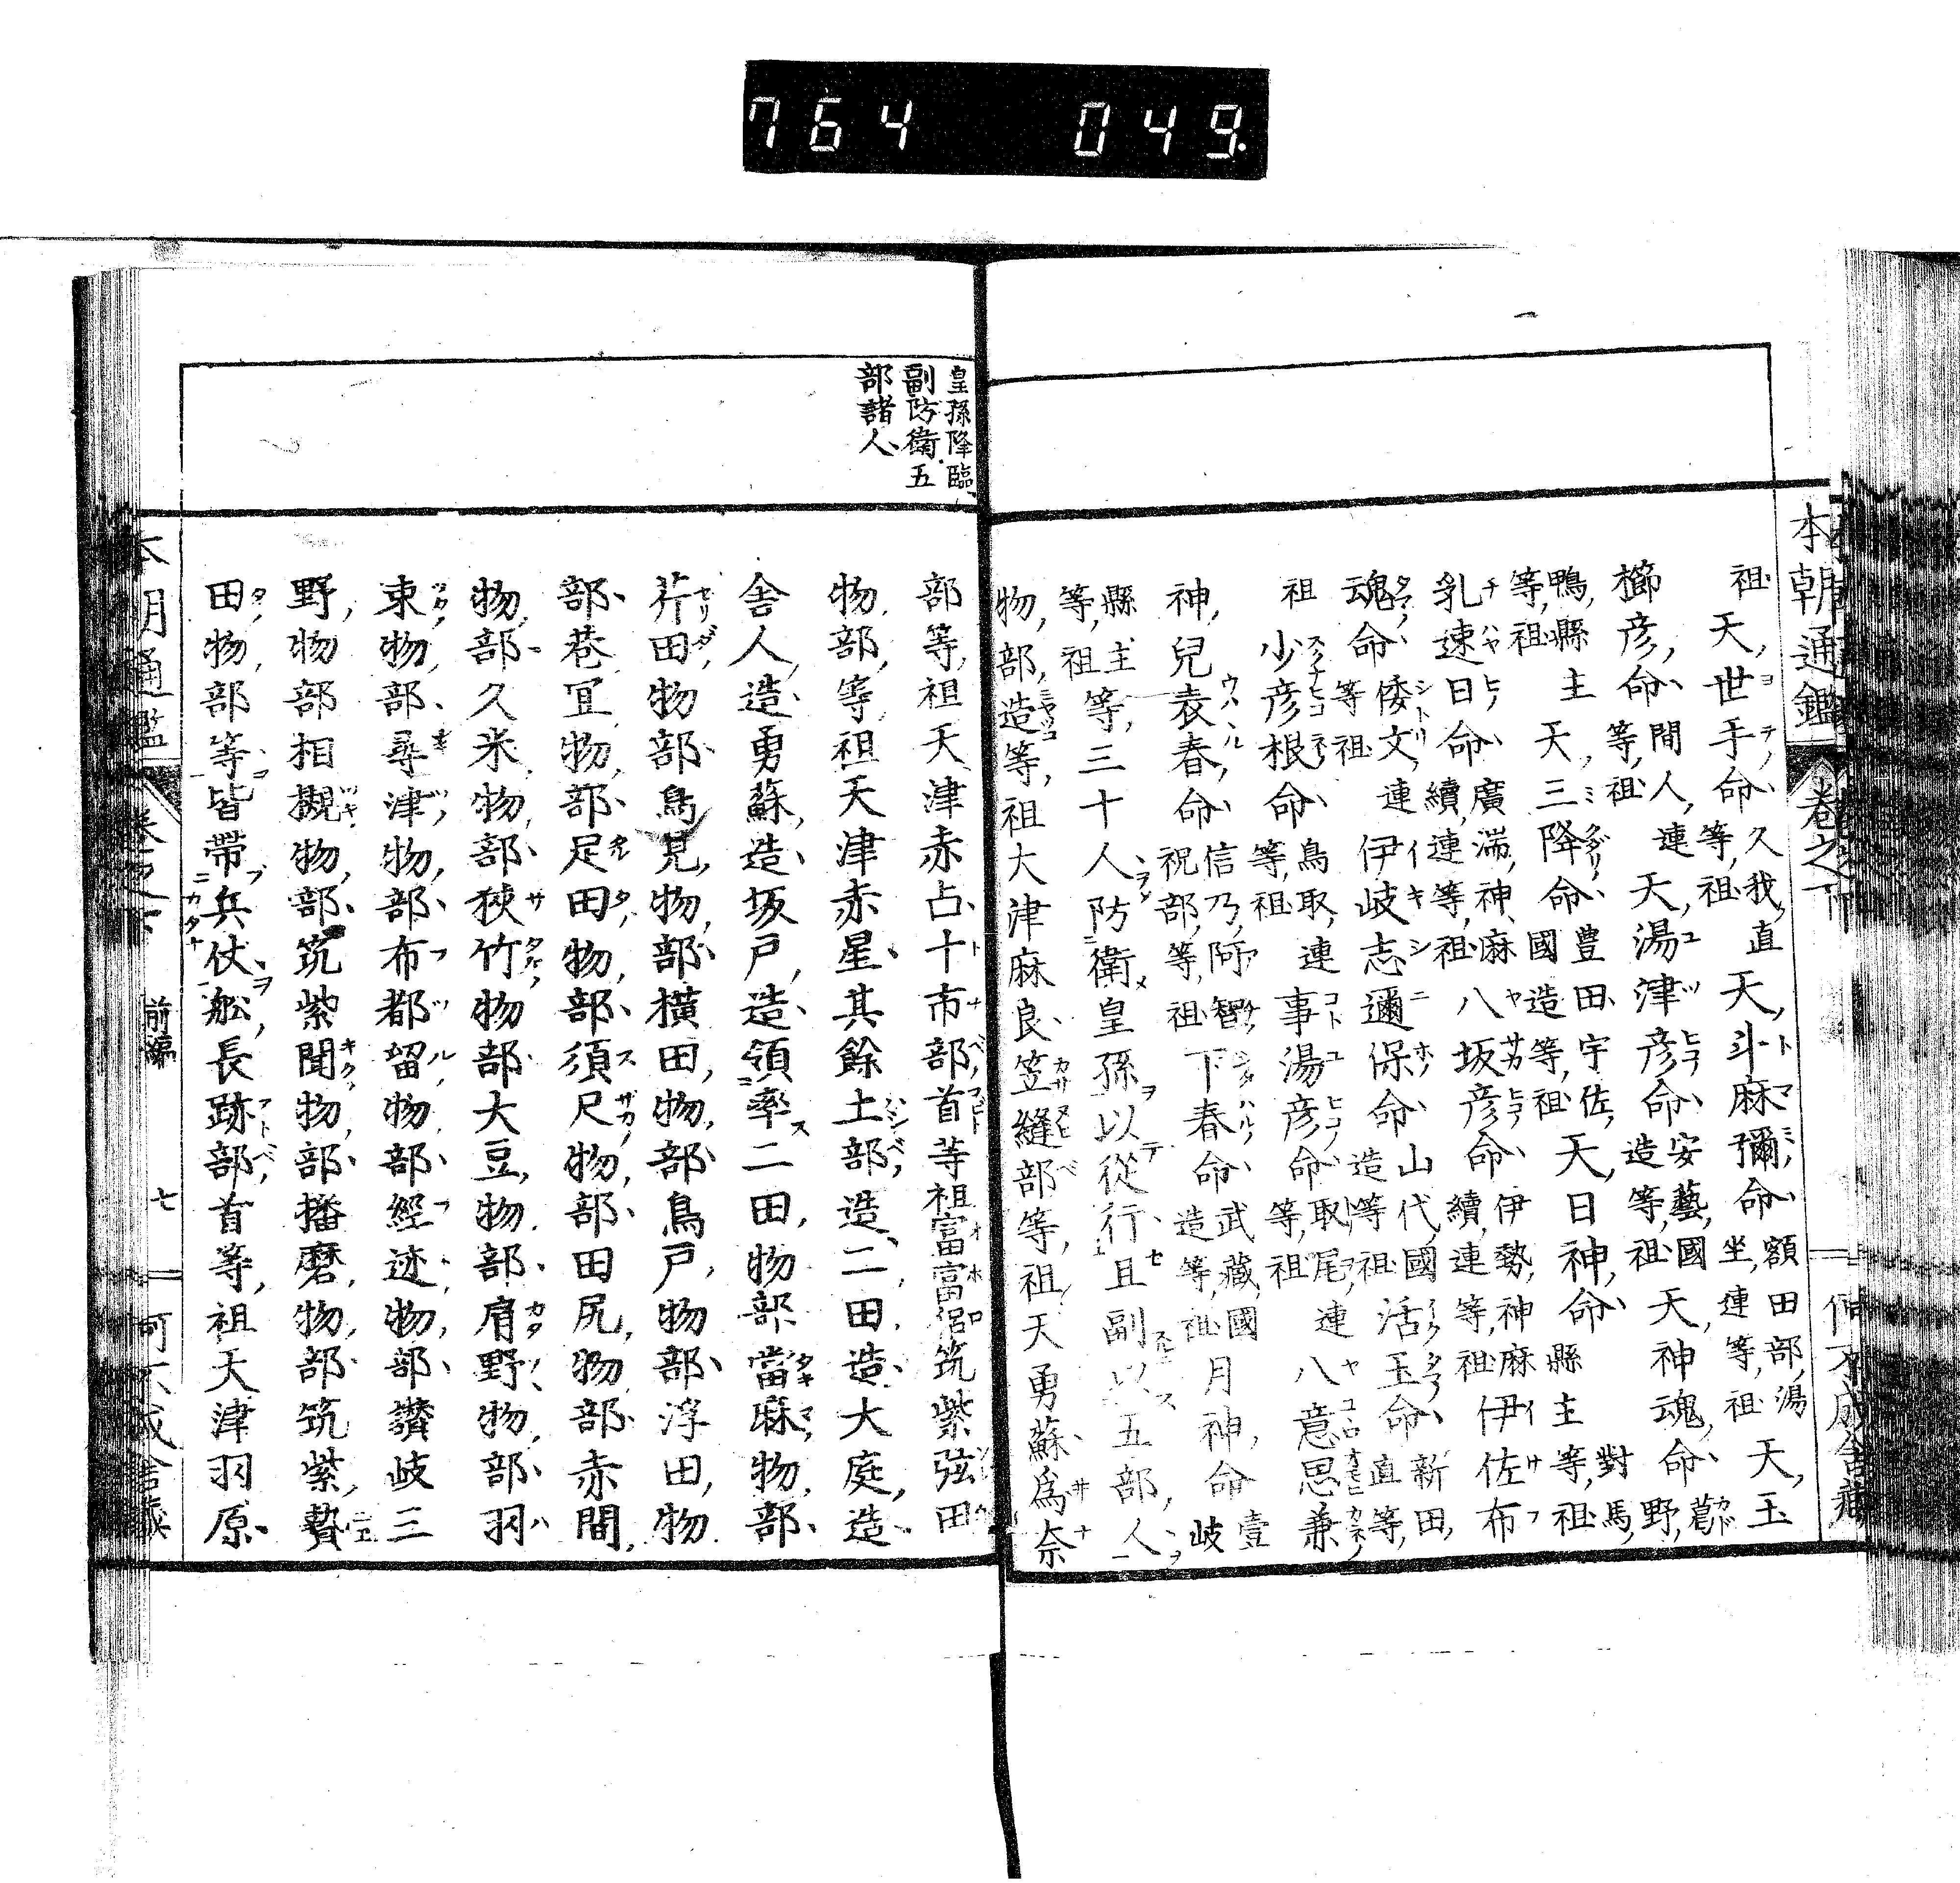 764 049.
本朝通鑑 卷之下
祖天世手命久我直等祖天斗麻彌命額田部湯坐連等祖天玉
櫛彦命間人連等祖天湯津彦命安藝國造等祖天神魂命葛野
鴨縣主等祖天三降命豊田宇佐國造等祖天日神命縣主等祖對馬
乳速日命廣湍神麻續連等祖八坂彦命伊勢神麻續連等祖伊佐布
魂命倭文連等祖伊岐志邇保命山代國造等祖活玉命新田直等
祖少彦根命鳥取連等祖事湯彦命取尾連等祖八意思兼
神兒表春命信乃阿智祝部等祖下春命武藏國造等祖月神命壹岐
縣主等祖等三十人防衛皇孫以從行且副以五部人
物部造等祖大津麻良笠縫部等祖天勇蘇爲奈
皇孫降臨
副防衛五
部諸人
部等祖天津赤占十市部首等祖富富侶筑紫弦田
物部等祖天津赤星其餘土部造二田造大庭造
舎人造勇蘇造坂戸造領率二田物部當麻物部
芹田物部鳥見物部横田物部鳥戸物部浮田物
部巷宜物部足田物部須尺物部田尻物部赤間
物部久米物部狹竹物部大豆物部肩野物部羽
束物部尋津物部布都留物部經迹物部讚岐三
野物部相槻物部筑紫聞物部播磨物部筑紫贄
田物部等皆帶兵仗舩長跡部首等祖天津羽原
前編 七